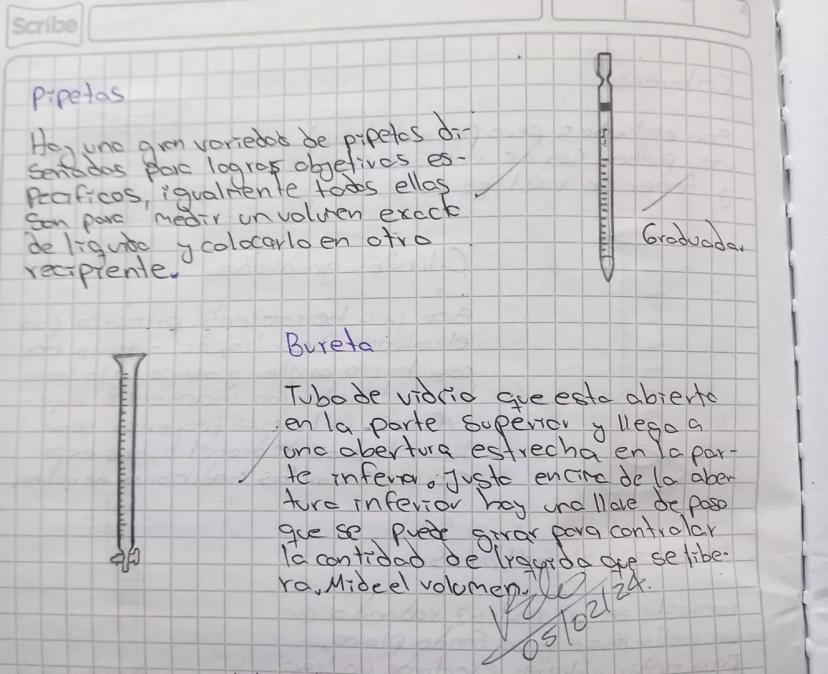 Scribe
Pipetas
Hay una gran variedad de pipetas di-
señadas para lograr objetivos es-
pecificos, igualmente todas ellas
son para medir un volumen exacto
de liquido y colocarlo en otro
recipiente.
Graduada.
Bureta
Tubo de vidrio que esta abierto
en la parte superior y llega a
una abertura estrecha en la par-
te inferia. Justo encima de la aber
tura inferior hay una llave de paso
que se puede girar para controlar
la cantidad de liquido que se libe-
ra. Mide el volumen.
05/02/24.